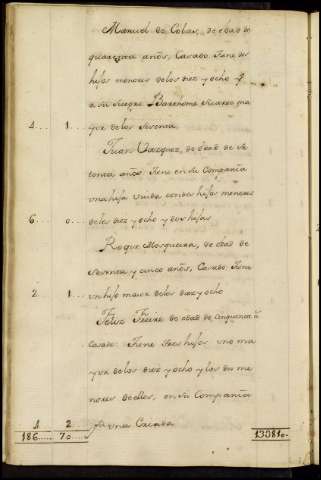 Manuel de Colas, de edad de
quarenta años, Casado. Tiene dos
hijos menores delos diez y ocho y
a su Suegro Barthome Suarez ma
4... 1... yor delos sesenta
Juan Vazquez, de edad de se
tenta años. Tiene en su Compañia
una hija viuda con dos hijos menores
6... 0... delos diez y ocho y dos hijas
Roque Mosqueira, de edad de
sesenta y cinco años, Casado. Tiene
2... 1... un hijo maior delos diez y ocho
Felix Freire de edad de cinquenta a
Casado. Tiene tres hijos uno ma
yor delos diez y ocho y los dos me
nores de ellos, en su Compañia
4 2 una Criada
186.... 70...